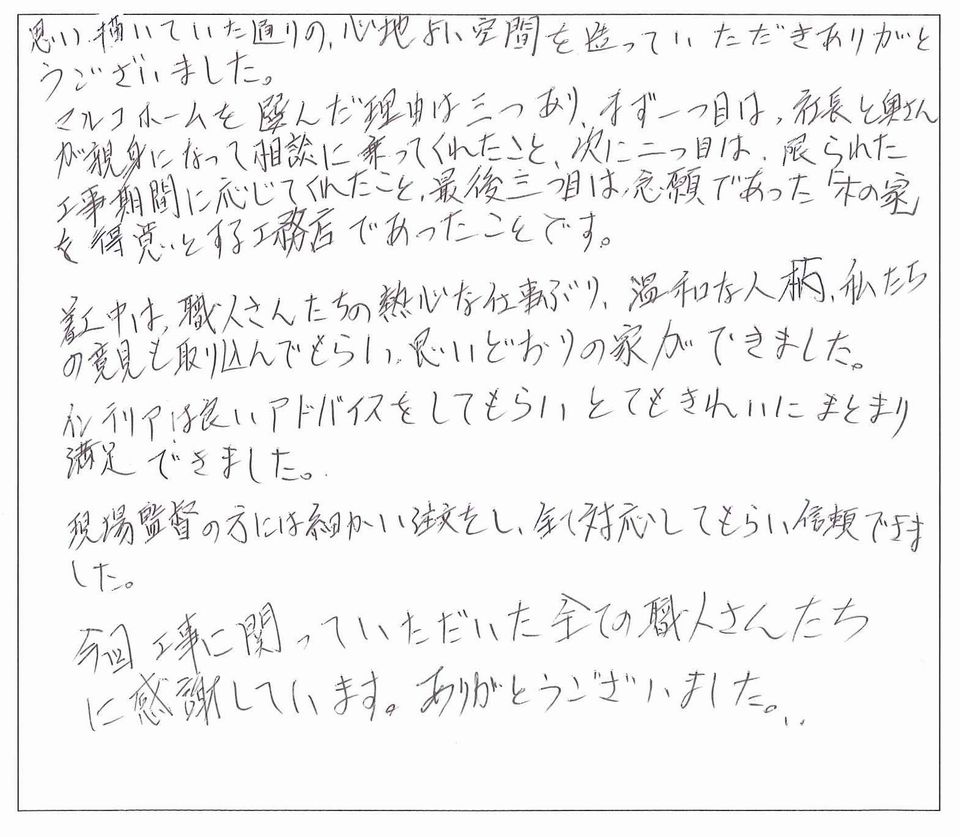 思い描いていた通りの、心地よい空間を造っていただきありがと
うございました。
マルコホームを選んだ理由は三つあり、まず一つ目は、社長と奥さん
が親身になって相談に乗ってくれたこと、次に二つ目は、限られた
工事期間に応じてくれたこと、最後三つ目は、念願であった「木の家」
を得意とする工務店であったことです。
着工中は、職人さんたちの熱心な仕事ぶり、温和な人柄、私たち
の意見も取り込んでもらい、思いどおりの家ができました。
インテリアは良いアドバイスをしてもらいとてもきれいにまとまり
満足できました。
現場監督の方には細かい注文をし、全て対応してもらい信頼できま
した。
今回工事に関っていただいた全ての職人さんたち
に感謝しています。ありがとうございました。